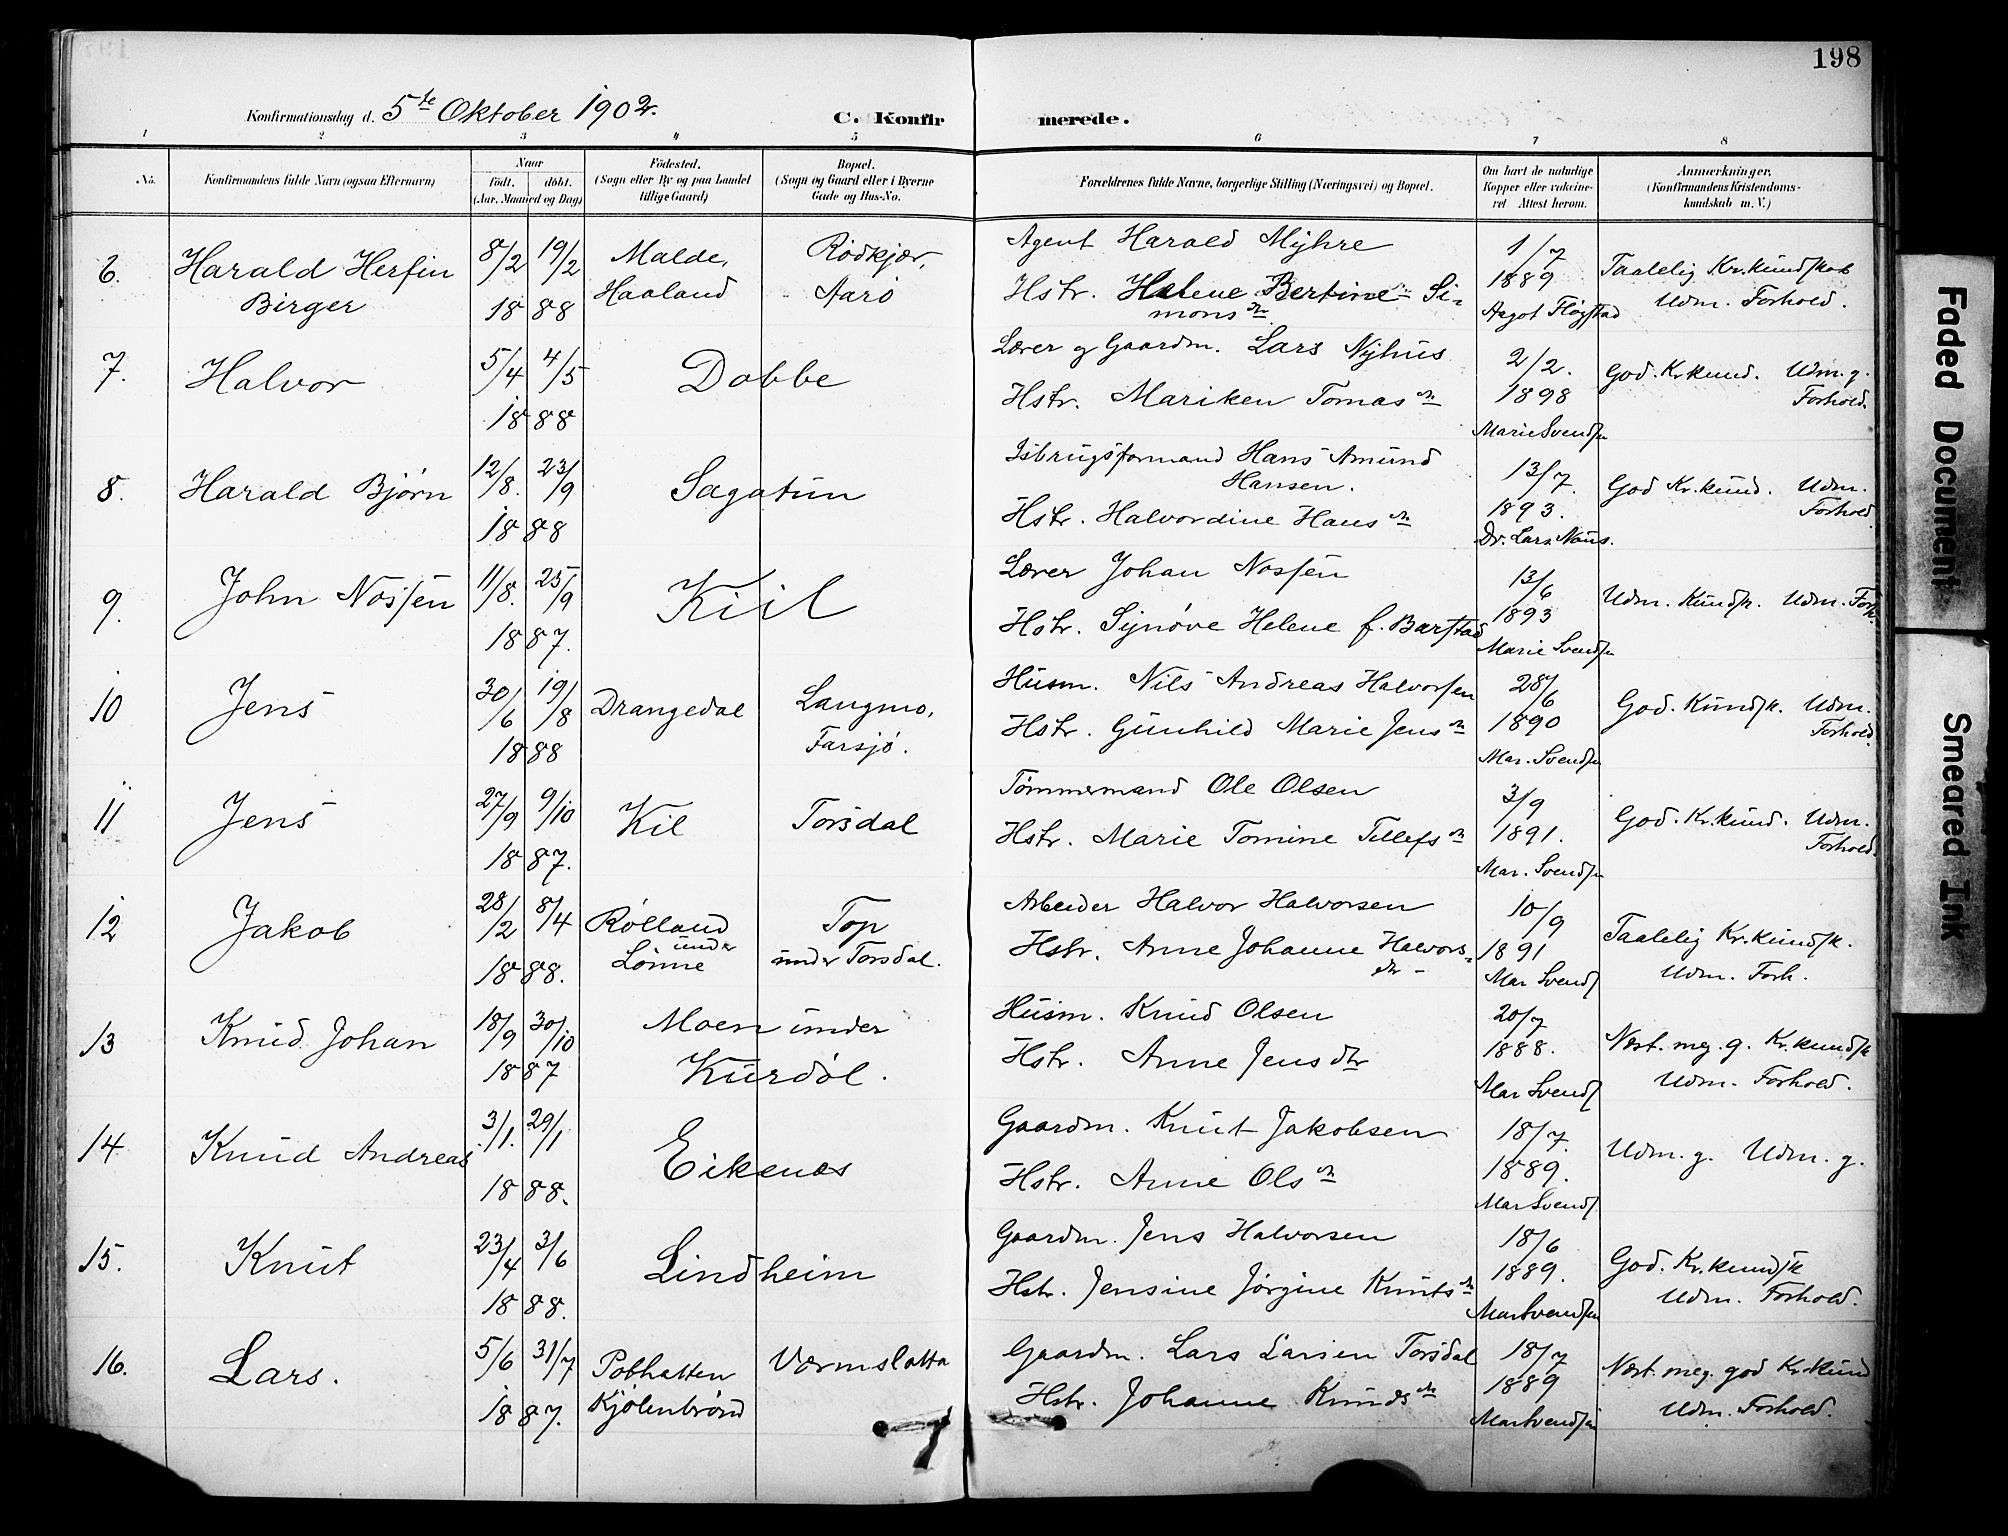 198
Konfirmationsdag d. 5te Oktober 1902.
C. Konfirmerede.
1 2 3 4 5 6 7 8
No.
Konfirmandens fulde Navn (ogsaa Efternavn)
Naar
født. døbt.
(Aar, Maaned og Dag)
Fødested.
(Sogn eller By og paa Landet
tillige Gaard)
Bopæl.
(Sogn og Gaard eller i Byerne
Gade og Hus-No.
Forældrenes fulde Navne, borgerlige Stilling (Næringsvei) og Bopæl.
Om havt de naturlige
Kopper eller vakcine-
ret Attest herom.
Anmærkninger,
(Konfirmandens Kristendoms-
kundskab m. V.)
6. Harald Herfin
Birger
8/2 19/2
1888
Malde,
Haaland
Rødkjær,
Aarö
Agent Harald Myhre
Hstr. Helene Bertine Si-
mons dr
1/7
1889
Aagot Fløgstad
Taalelig Kr.kundskab
Udm. Forhold.
7. Halvor
5/4 4/5
1888
Dobbe
Lærer og Gaardm. Lars Nyhus
Hstr. Mariken Tomas dr
2/2.
1898
Marie Svendsen
God. Kr.kund. Udm. g.
Forhold.
8. Harald Bjørn
12/8. 23/9
1888
Sagatun
Isbrugsformand Hans Amund
Hansen.
Hstr. Halvordine Hans dr
13/7.
1893.
Dr. Lars Næss.
God Kr.kund. Udm.
Forhold
9. John Nossen
11/8. 25/9
1887.
Kiil
Lærer Johan Nossen
Hstr. Synøve Helene f. Barstad
13/6
1893
Marie Svendsen
Udm. Kundsk. Udm. Forh.
10 Jens
30/6 19/8
1888
Drangedal
Langmo,
Farsjø.
Husm. Nils Andreas Halvorsen
Hstr. Gunhild Marie Jens dr
28/6
1890
Mar. Svendsen
God. Kundsk. Udm.
Forhold.
11 Jens
27/9 9/10
1887.
Kil
Torsdal
Tømmermand Ole Olsen
Hstr. Marie Tomine Tellefs dr
3/9
1891.
Mar. Svendsen
God. Kr.kund. Udm.
Forhold.
12 Jakob
28/2 8/4
1888.
Rølland
under
Lønne
Top
under Torsdal.
Arbeider Halvor Halvorsen
Hstr. Anne Johanne Halvors-
dr
10/9
1891
Mar Svends
Taalelig Kr.kundsk.
Udm. Forh.
13 Knud Johan
18/9 30/10
1887
Moen under
Kurdøl.
Husm. Knud Olsen
Hstr. Anne Jens dtr
20/7
1888.
Mar Svends
Næst. meg. g. Kr.kundsk
Udm. Forhold.
14 Knud Andreas
3/1. 29/1
1888.
Eikenæs
Gaardm. Knut Jakobsen
Hstr. Anne Ols dr
18/7.
1889.
Mar Svends
Udm. g. Udm. g.
15. Knut
23/4 3/6
1888.
Lindheim
Gaardm. Jens Halvorsen
Hstr. Jensine Jørgine Knuts dr
18/6
1889.
Mar Svendsen
God. Kr.kundsk
Udm. Forhold.
16. Lars.
5/6 31/7
1887.
Pothatten
Kjølenbrønd
Værmslatta
Gaardm. Lars Larsen Torsdal
Hstr. Johanne Knuds dr
18/7
1889
Mar Svendsen
Næst. meg. god Kr.kund
Udm. Forhold.
Faded Document
Smeared Ink